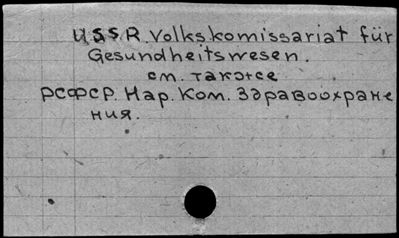 USSR. Volkskomissariat für
Gesundheitswesen.
см. также
РСФСР. Нар. Ком. Здравоохране
ния.